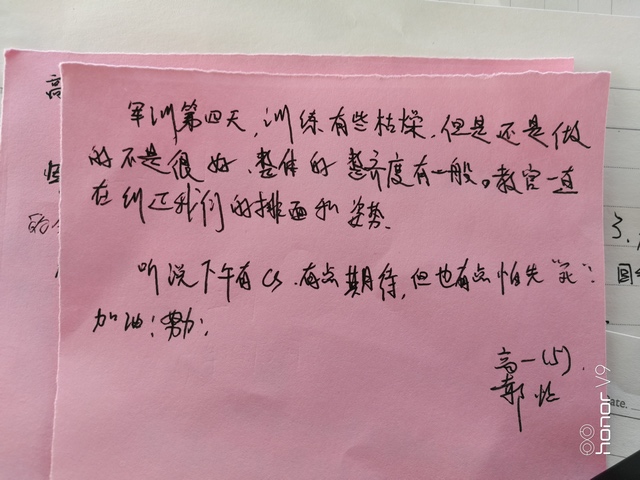 军训第四天,训练有些枯燥,但是还是做
的不是很好、整体的整齐度有一般。教官一直
在纠正我们的排面和姿势.
听说下午有CS.有点期待,但也有点怕先"死".
加油!努力!
高一(5).
郭
高
的
3.
ate.
honor V9